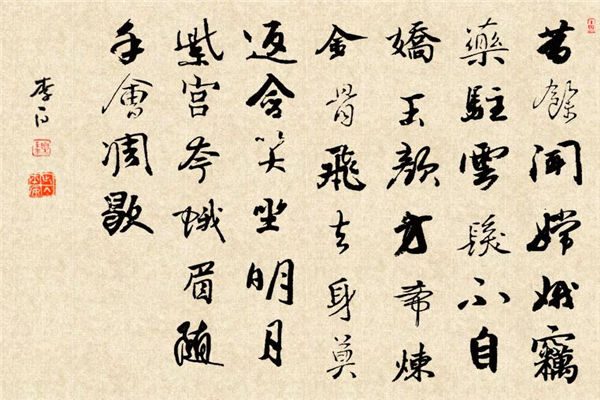 昔餘聞嫦娥竊
藥駐雲髮不自
嬌玉顏方希煉
金骨飛去身莫
返含笑坐明月
紫宮夸蛾眉隨
手會凋歇
李白